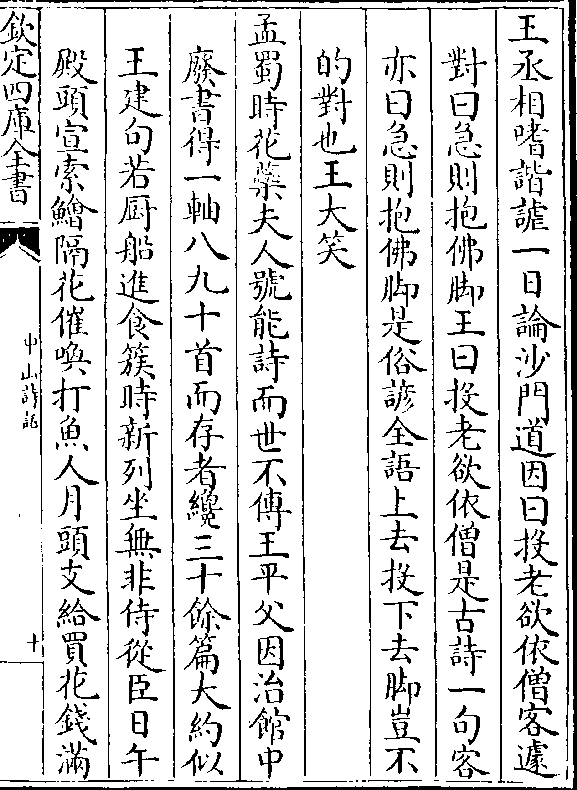 王丞相嗜諧謔一日論沙門道因曰投老欲依僧客遽
對曰急則抱佛脚王曰投老欲依僧是古詩一句客
亦曰急則抱佛脚是俗諺全語上去投下去脚豈不
的對也王大笑
孟蜀時花蘂夫人號能詩而世不傳王平父因治館中
廢書得一軸八九十首而存者纔三十餘篇大約似
王建句若厨船進食簇時新列坐無非侍從臣日午
殿頭宣索鱠隔花催喚打魚人月頭支給買花錢滿
欽定四庫全書
中山詩話
十